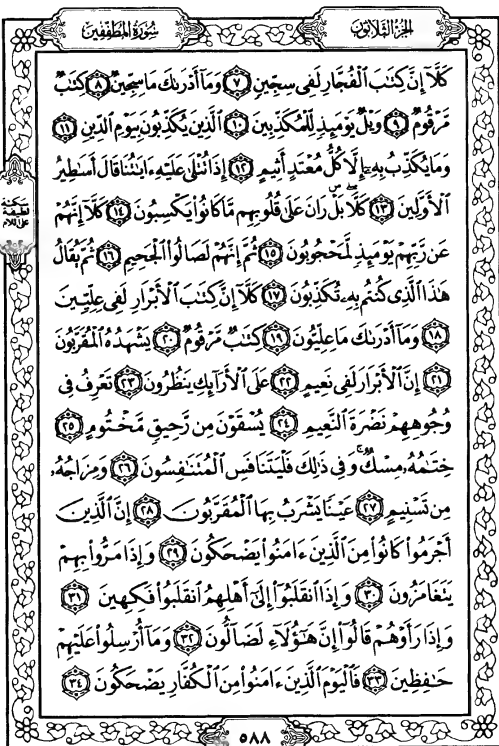 سُورَةُ المُطَفِّفِينَ
الجُزْءُ الثَّلَاثُونَ
كَلَّآ إِنَّ كِتَٰبَ ٱلْفُجَّارِ لَفِى سِجِّينٍ ٧ وَمَآ أَدْرَىٰكَ مَا سِجِّينٌ ٨ كِتَٰبٌ
مَّرْقُومٌ ٩ وَيْلٌ يَوْمَئِذٍ لِّلْمُكَذِّبِينَ ١٠ ٱلَّذِينَ يُكَذِّبُونَ بِيَوْمِ ٱلدِّينِ ١١
وَمَا يُكَذِّبُ بِهِۦٓ إِلَّا كُلُّ مُعْتَدٍ أَثِيمٍ ١٢ إِذَا تُتْلَىٰ عَلَيْهِ ءَايَٰتُنَا قَالَ أَسَٰطِيرُ
ٱلْأَوَّلِينَ ١٣ كَلَّا بَلْ ۜ رَانَ عَلَىٰ قُلُوبِهِم مَّا كَانُوا۟ يَكْسِبُونَ ١٤ كَلَّآ إِنَّهُمْ
عَن رَّبِّهِمْ يَوْمَئِذٍ لَّمَحْجُوبُونَ ١٥ ثُمَّ إِنَّهُمْ لَصَالُوا۟ ٱلْجَحِيمِ ١٦ ثُمَّ يُقَالُ
هَٰذَا ٱلَّذِى كُنتُم بِهِۦ تُكَذِّبُونَ ١٧ كَلَّآ إِنَّ كِتَٰبَ ٱلْأَبْرَارِ لَفِى عِلِّيِّينَ
١٨ وَمَآ أَدْرَىٰكَ مَا عِلِّيُّونَ ١٩ كِتَٰبٌ مَّرْقُومٌ ٢٠ يَشْهَدُهُ ٱلْمُقَرَّبُونَ
٢١ إِنَّ ٱلْأَبْرَارَ لَفِى نَعِيمٍ ٢٢ عَلَى ٱلْأَرَآئِكِ يَنظُرُونَ ٢٣ تَعْرِفُ فِى
وُجُوهِهِمْ نَضْرَةَ ٱلنَّعِيمِ ٢٤ يُسْقَوْنَ مِن رَّحِيقٍ مَّخْتُومٍ ٢٥
خِتَٰمُهُۥ مِسْكٌ ۚ وَفِى ذَٰلِكَ فَلْيَتَنَافَسِ ٱلْمُتَنَٰفِسُونَ ٢٦ وَمِزَاجُهُۥ
مِن تَسْنِيمٍ ٢٧ عَيْنًا يَشْرَبُ بِهَا ٱلْمُقَرَّبُونَ ٢٨ إِنَّ ٱلَّذِينَ
أَجْرَمُوا۟ كَانُوا۟ مِنَ ٱلَّذِينَ ءَامَنُوا۟ يَضْحَكُونَ ٢٩ وَإِذَا مَرُّوا۟ بِهِمْ
يَتَغَامَزُونَ ٣٠ وَإِذَا ٱنقَلَبُوٓا۟ إِلَىٰٓ أَهْلِهِمُ ٱنقَلَبُوا۟ فَكِهِينَ ٣١
وَإِذَا رَأَوْهُمْ قَالُوٓا۟ إِنَّ هَٰٓؤُلَآءِ لَضَآلُّونَ ٣٢ وَمَآ أُرْسِلُوا۟ عَلَيْهِمْ
حَٰفِظِينَ ٣٣ فَٱلْيَوْمَ ٱلَّذِينَ ءَامَنُوا۟ مِنَ ٱلْكُفَّارِ يَضْحَكُونَ ٣٤
سكتة
لطيفة
على اللام
٥٨٨